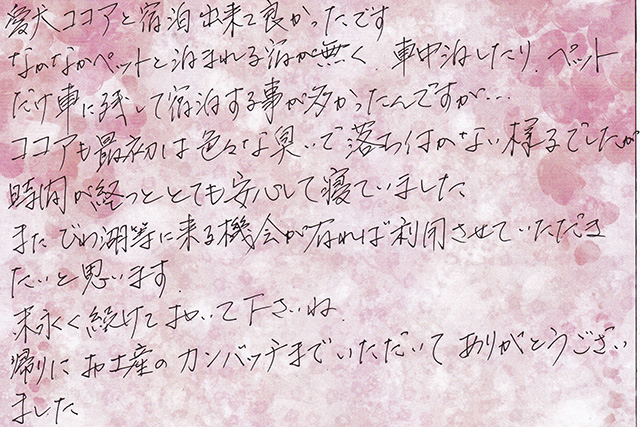 愛犬ココアと宿泊出来て良かったです
なかなかペットと泊まれる宿が無く、車中泊したり、ペット
だけ車に残して宿泊する事が多かったんですが…
ココアも最初は色々な臭いで落ち付かない様子でしたが
時間が経つととても安心して寝ていました
またびわ湖等に来る機会が有れば利用させていただき
たいと思います
末永く続けておいて下さいね
帰りにお土産のカンバッチまでいただいてありがとうござい
ました